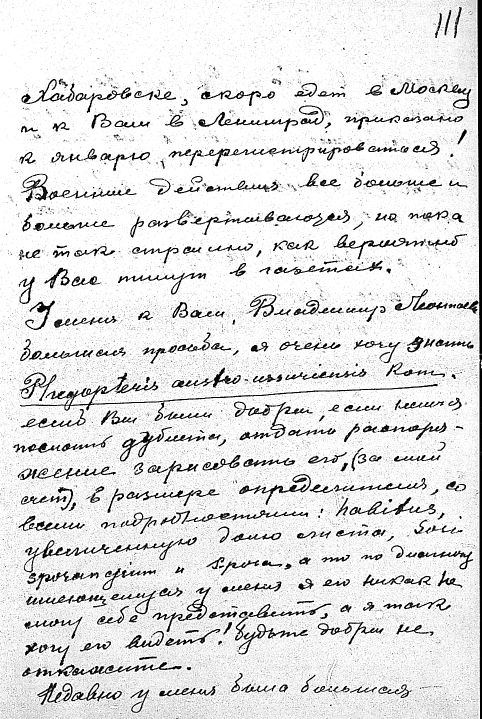 111
Хабаровске, скоро едет в Москву
и к Вам в Ленинград, приказано
к январю перерегистрироваться!
Военные действия все больше и
больше развертываются, но пока
не так страшно, как вероятно
у Вас пишут в газетах.
У меня к Вам, Владимир Леонтьев
большая просьба, я очень хочу знать
Phegopteris austro-ussuriensis Kom.
если Вы были добры, если нельзя
послать дублета, отдать распоря-
жение зарисовать его, (за мой
счет), в размере определителя, со
всеми подробностями: habitus,
увеличенную долю листа,
и а то по диагнозу
имеющемуся у меня я его никак не
могу себе представить, а я так
хочу его видеть! будьте добры не
откажите.
Недавно у меня была большая